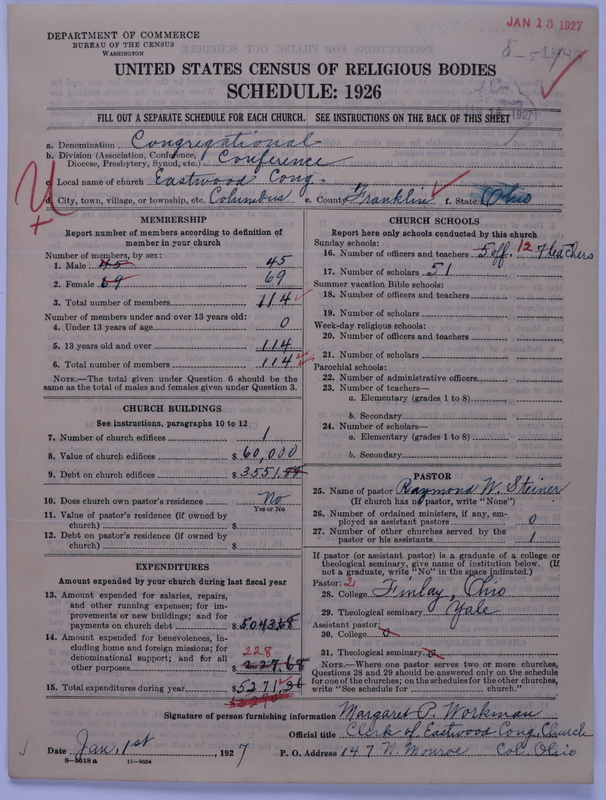 JAN 15 1927
DEPARTMENT OF COMMERCE
BUREAU OF THE CENSUS
WASHINGTON
UNITED STATES CENSUS OF RELIGIOUS BODIES
SCHEDULE: 1926
FILL OUT A SEPARATE SCHEDULE FOR EACH CHURCH. SEE INSTRUCTIONS ON THE BACK OF THIS SHEET
a. Denomination Congregational
b. Division (Association, Conference, Diocese, Presbytery, Synod, etc.) Conference
c. Local name of church Eastwood Cong.
d. City, town, village, or township, etc. Columbus e. County Franklin f. State Ohio
MEMBERSHIP
Report number of members according to definition of
member in your church
Number of members, by sex:
1. Male 45 45
2. Female 69 69
3. Total number of members 114
Number of members under and over 13 years old:
4. Under 13 years of age 0
5. 13 years old and over 114
6. Total number of members 114
NOTE.—The total given under Question 6 should be
same as the total of males and females given under Question 3.
CHURCH BUILDINGS
See instructions, paragraphs 10 to 12
7. Number of church edifices 1
8. Value of church edifices $60,000
9. Debt on church edifices $3551
10. Does church own pastor's residence No
Yes or No
11. Value of pastor's residence (if owned by
church) $
12. Debt on pastor's residence (if owned by
church) $
EXPENDITURES
Amount expended by your church during last fiscal year
13. Amount expended for salaries, repairs,
and other running expenses; for im-
provements or new buildings; and for
payments on church debt $5043.68
14. Amount expended for benevolences, in-
cluding home and foreign missions; for
denominational support; and for all
other purposes 228 $227.68
15. Total expenditures during year $5271.36
CHURCH SCHOOLS
Report here only schools conducted by this church
Sunday schools:
16. Number of officers and teachers 5 off. 12 7 teachers
17. Number of scholars 51
Summer vacation Bible schools:
18. Number of officers and teachers
19. Number of scholars
Week-day religious schools:
20. Number of officers and teachers
21. Number of scholars
Parochial schools:
22. Number of administrative officers
23. Number of teachers—
a. Elementary (grades 1 to 8)
b. Secondary
24. Number of scholars—
a. Elementary (grades 1 to 8)
b. Secondary
PASTOR
25. Name of pastor Raymond W. Steiner
(If church has no pastor, write "None")
26. Number of ordained ministers, if any, em-
ployed as assistant pastors 0
27. Number of other churches served by the
pastor or his assistants 1
If pastor (or assistant pastor) is a graduate of a college or
theological seminary, give name of institution below. (If
not a graduate, write "No" in the space indicated.)
Pastor: 2
28. College Finlay, Ohio
29. Theological seminary Yale
Assistant pastor:
30. College 0
31. Theological seminary 0
NOTE.—Where one pastor serves two or more churches,
Questions 28 and 29 should be answered only on the schedule
for one of the churches; on the schedules for the other churches,
write "See schedule for church."
Signature of person furnishing information Margaret P. Workman
Official title Clerk of Eastwood Cong. Church
Date Jan. 1st, 1927 P. O. Address 147 N. Monroe Col. Ohio
8—5518 a 11—9054